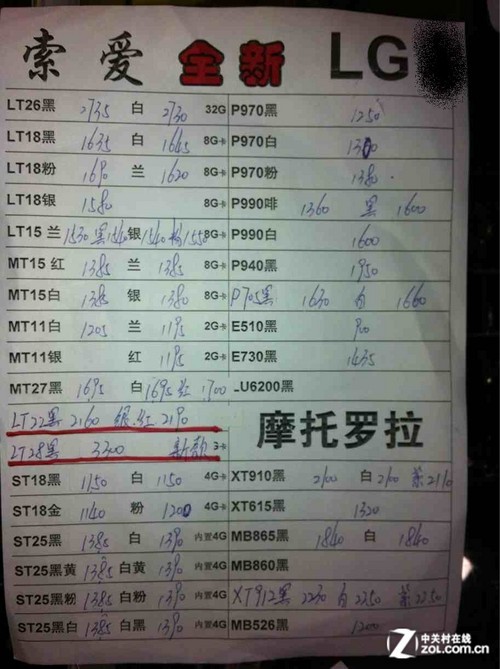 索爱 全新 LG
LT26黑 2735 白 2730 32G P970黑 1250
LT18黑 1635 白 1645 8G卡 P970白 1300
LT18粉 1690 兰 1620 8G卡 P970粉 1380
LT18银 1580 8G卡 P990啡 1360 黑 1600
LT15 兰 1530 黑1540 银 1540 粉 1550 8G卡 P990白 1600
MT15 红 1385 兰 1385 8G卡 P940黑 1950
MT15白 1385 银 1380 8G卡 P705黑 1630 白 1660
MT11白 1205 兰 1195 2G卡 E510黑 900
MT11银 红 1195 2G卡 E730黑 1435
MT27黑 1695 白 1695 红 1700 LU6200黑
LT22黑 2160 银.红 2190
LT28黑 3300 新款 摩托罗拉
ST18黑 1150 白 1150 4G卡 XT910黑 2100 白 2100 紫 2110
ST18金 1140 粉 1200 4G卡 XT615黑 1320
ST25黑 1385 白 1390 内置4G MB865黑 1840 白 1840
ST25黑黄 1385 白黄 1390 内置4G MB860黑
ST25黑粉 1385 白粉 1390 内置4G XT912黑 2230 白 2250 紫 2250
ST25黑白 1385 白黑 1390 内置4G MB526黑 1200
中关村在线
zol.com.cn